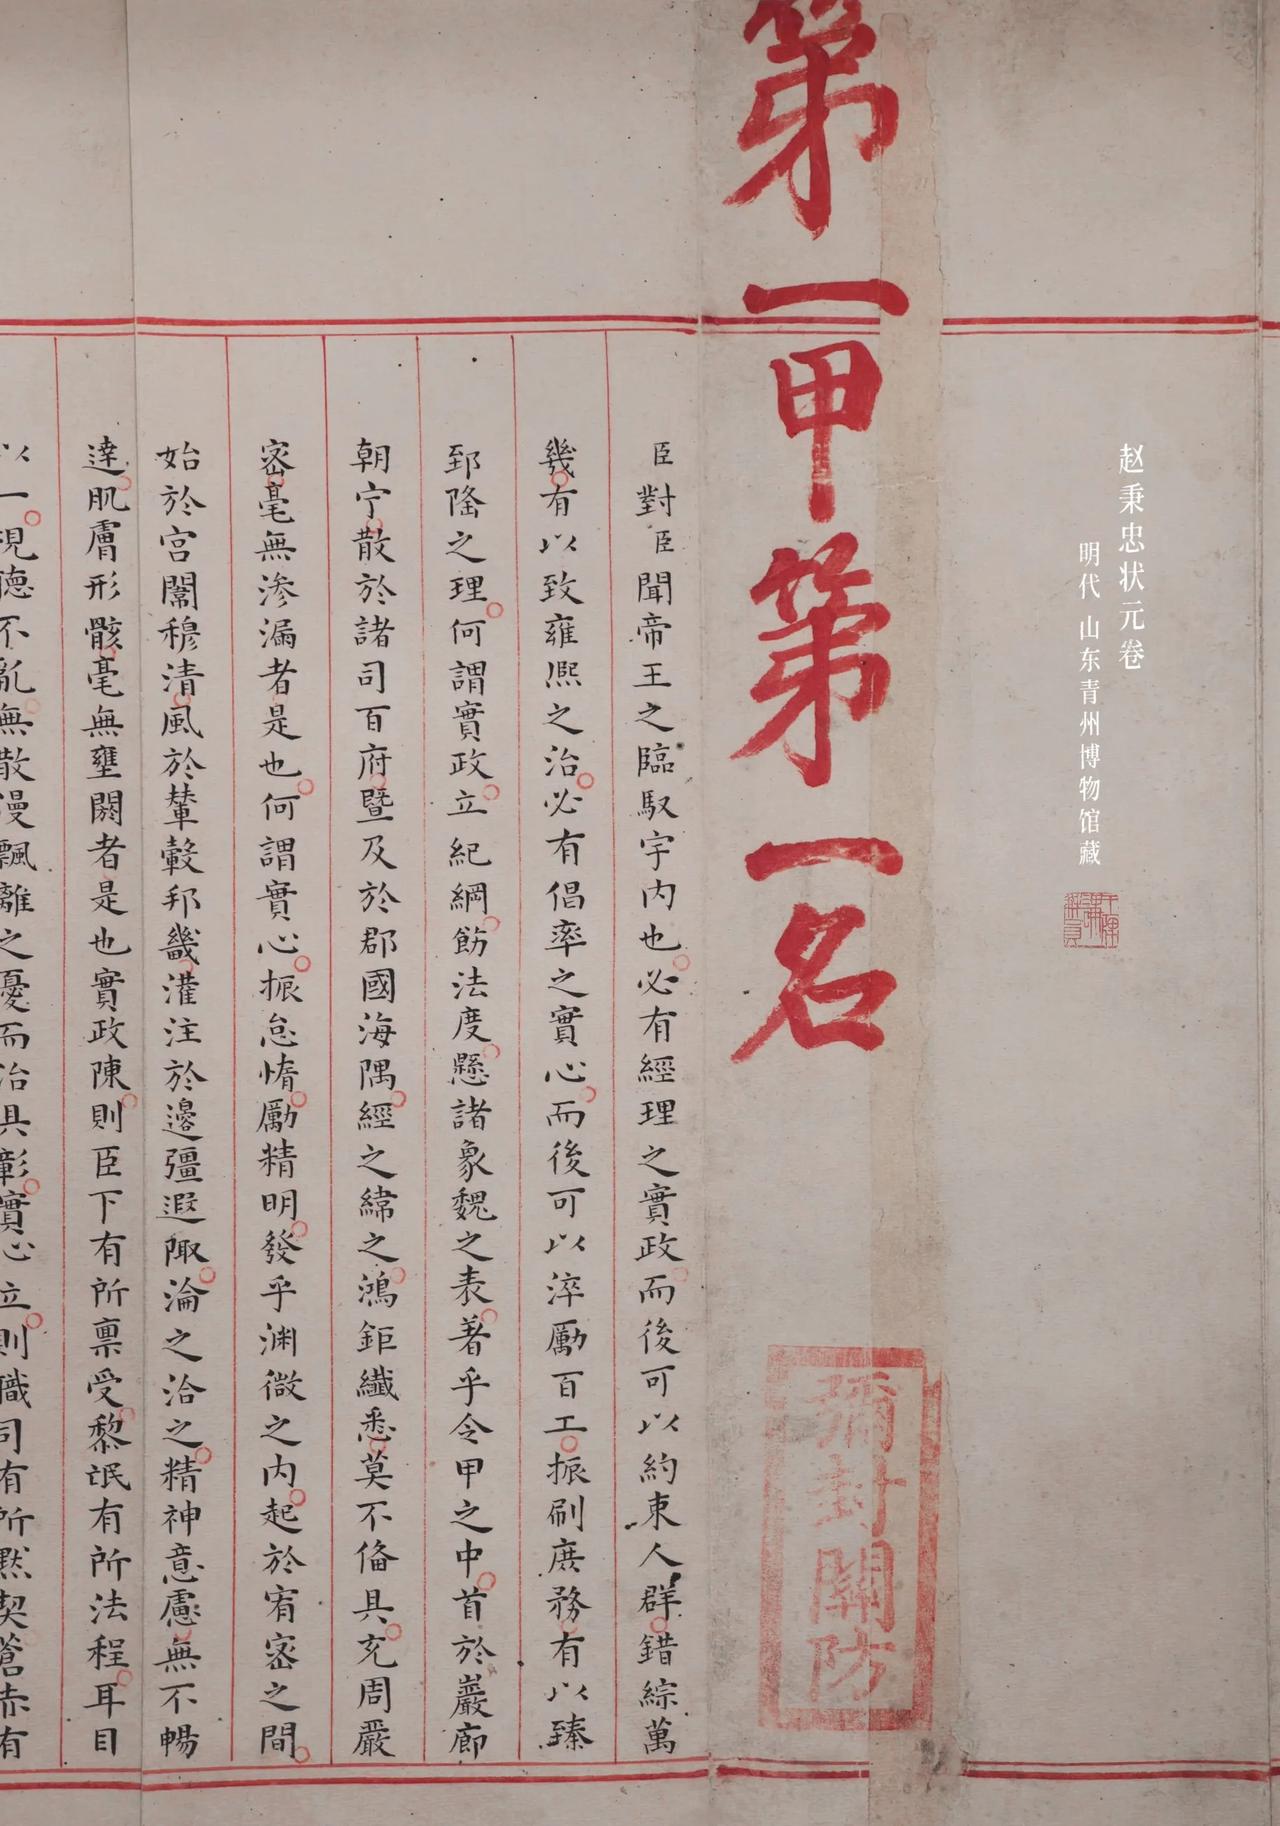 赵秉忠状元卷
明代 山东青州博物馆藏
第一甲第一名
彌封關防
臣對臣聞帝王之臨馭宇内也必有經理之實政而後可以約束人群錯綜萬
幾有以致雍熙之治必有倡率之實心而後可以淬勵百工振刷庶務有以臻
郅隆之理何謂實政立紀綱飭法度懸諸象魏之表著乎令甲之中首於巖廊
朝宁散於諸司百府暨及於郡國海隅經之緯之鴻鉅纖悉莫不偹具充周嚴
宻毫無滲漏者是也何謂實心振怠惰勵精明發乎渊微之内起於宥宻之間
始於宫闈穆清風於輦轂邦畿灌注於邊疆遐陬淪之洽之精神意慮無不暢
達肌膚形骸毫無壅閼者是也實政陳則臣下有所禀受黎氓有所法程耳目
以一視聽不亂無散漫飄離之憂而治具彰實心立則職司有所黙契蒼赤有